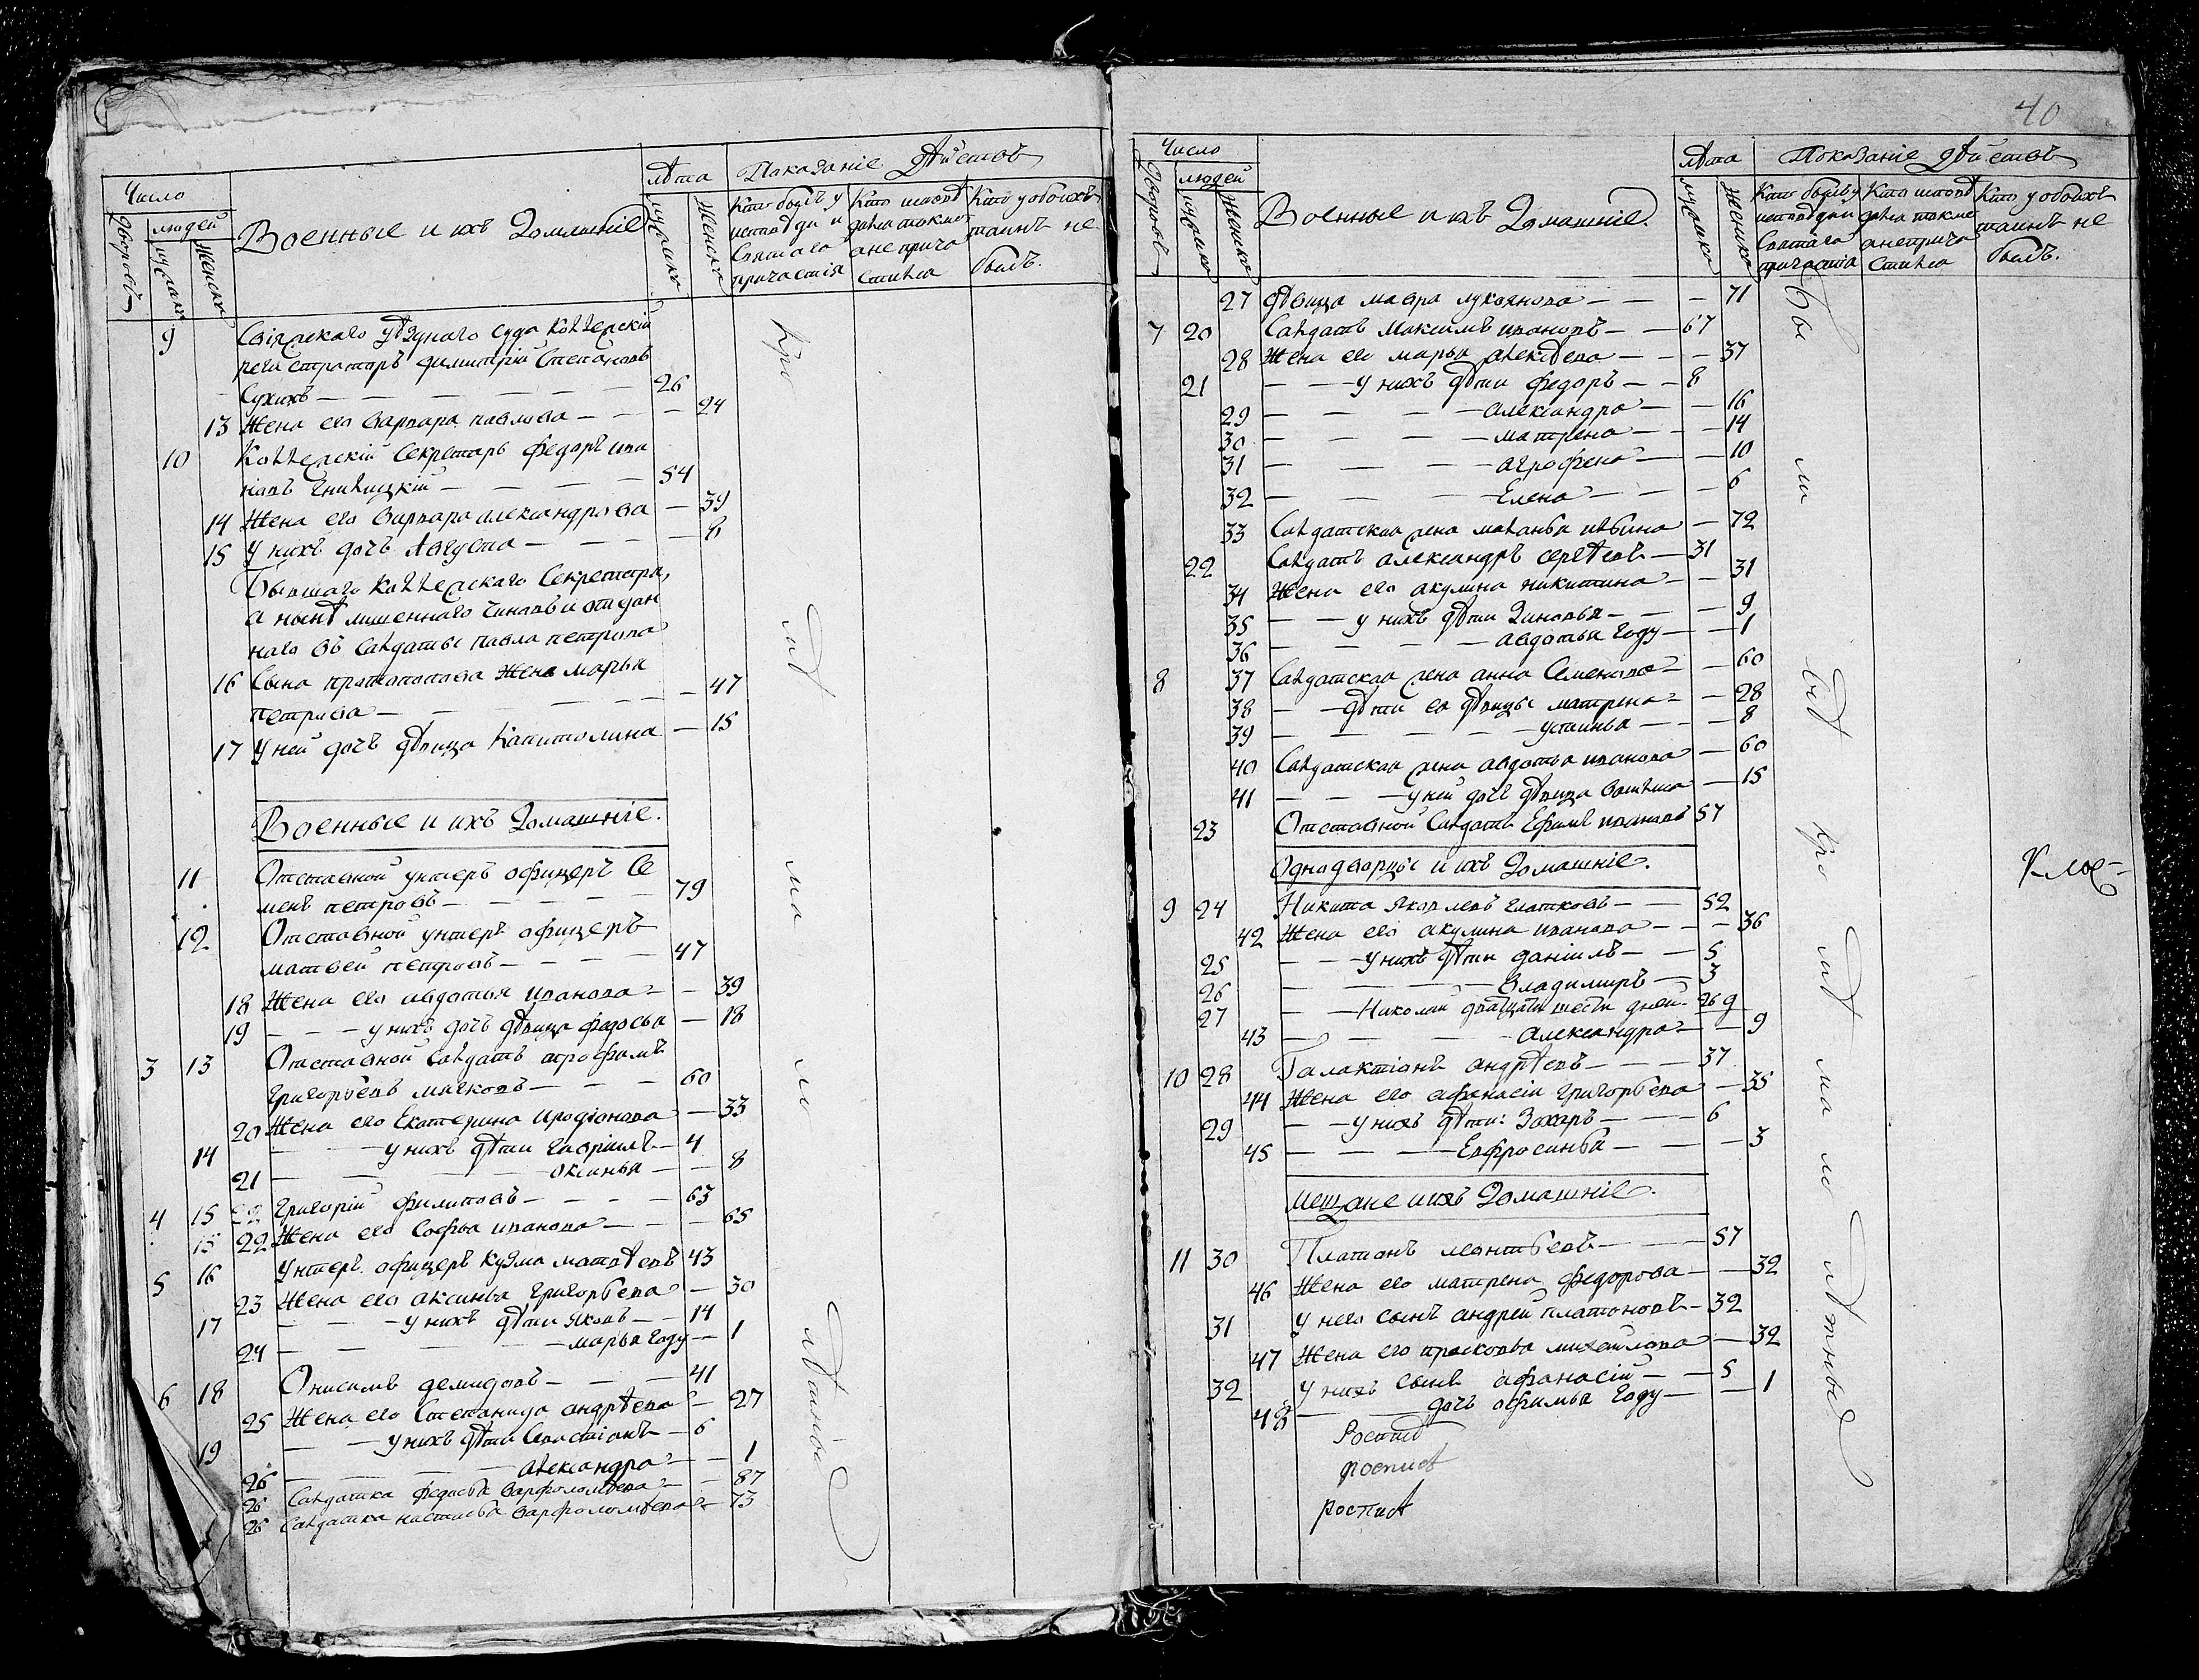 Число
людей
Дворовъ
мужеска
женска
Военные и ихъ Домашніе
лѣта
мужеска
женска
Показаніе Дѣйствъ
Кто былъ у исповѣди и Святаго причастія
Кто исповѣдался токмо а не причастился
Кто у обоихъ таинъ не былъ.
9 Свіяжскаго уѣзднаго суда Коллежскій
регистраторъ Димитрій Степановъ
Сухихъ — 26
13 Жена его Варвара павлова — 24
10 Коллежскій Секретарь Федоръ ива
новъ — 54
14 Жена его Варвара александрова — 39
15 У нихъ дочь Августа — 8
Бывшаго Коллежскаго Секретаря,
а нынѣ лишеннаго Чиновъ и отдан
наго въ Салдаты павла петрова
16 Сына протопопова Жена марья
петрова — 47
17 У ней дочь дѣвица Капитолина — 15
Военные и ихъ Домашніе.
11 Отставной унтеръ офицеръ Се
менъ петровъ — 79
12 Отставной унтеръ офицеръ
матвей петровъ — 47
18 Жена его авдотья иванова — 39
19 — у нихъ дочь дѣвица федосья — 18
3 13 Отставной Салдатъ трофимъ
Григорьевъ — 60
20 Жена его Екатерина иродіонова — 33
14 — у нихъ дѣти гавріилъ — 4
21 — оксинья — 8
4 15 22 Григорій филиповъ — 63
15 22 Жена его Софья иванова — 65
5 16 Унтеръ офицеръ Кузма матвѣевъ 43
23 Жена его аксинья Григорьева — 30
17 — у нихъ дѣти Яковъ — 14
24 — марья году — 1
6 18 Онисимъ демидовъ — 41
25 Жена его Степанида андрѣева — 27
19 — у нихъ дѣти Савастіанъ — 6
26 — александра — 1
26 Салдатка федосья варфоломѣева — 87
26 Салдатка настасья варфоломѣева — 73
40
Число
людей
Дворовъ
мужеска
женска
Военные и ихъ Домашніе.
лѣта
мужеска
женска
Показаніе Дѣйствъ
Кто былъ у исповѣди и Святаго причастія
Кто исповѣдался токмо а не причастился
Кто у обоихъ таинъ не былъ.
27 дѣвица мавра лукоянова — 71
7 20 Салдатъ Максимъ ивановъ — 67
28 Жена его марья алексѣева — 37
21 — у нихъ дѣти федоръ — 8
29 — александра — 16
30 — матрена — 14
31 — агрофена — 10
32 — Елена — 6
33 Салдатская жена маланья ильина — 72
22 Салдатъ александръ сергѣевъ — 31
34 Жена его акулина никитина — 31
35 — у нихъ дѣти Зиновья — 9
36 — авдотья году — 1
8 37 Салдатская жена анна Семенова — 60
38 — дѣти ея дѣвицы матрена — 28
39 — устинья — 8
40 Салдатская жена авдотья иванова — 60
41 — у ней дочь дѣвица васѣлиса — 15
23 Отставной Салдатъ Ефимъ ивановъ 57
Однодворцы и ихъ Домашніе.
9 24 Никита Яковлевъ глотковъ — 52
42 Жена его акулина иванова — 36
25 — у нихъ дѣти даніилъ — 5
26 — Владимиръ — 3
27 — Николай двадцати шести дней 26 д
43 — александра — 9
10 28 Галактіонъ андрѣевъ — 37
44 Жена его афанасіа григорьева — 35
29 — у нихъ дѣти: Захаръ — 6
45 — Евфросинья — 3
Мещане и ихъ Домашніе.
11 30 Платонъ леонтьевъ — 57
46 Жена его матрена федорова — 32
31 у него сынъ андрей платоновъ — 32
47 Жена его прасковья михайлова — 32
32 у нихъ сынъ афанасій — 5
48 — дочь афимья году — 1
Роспис
роспис
роспис